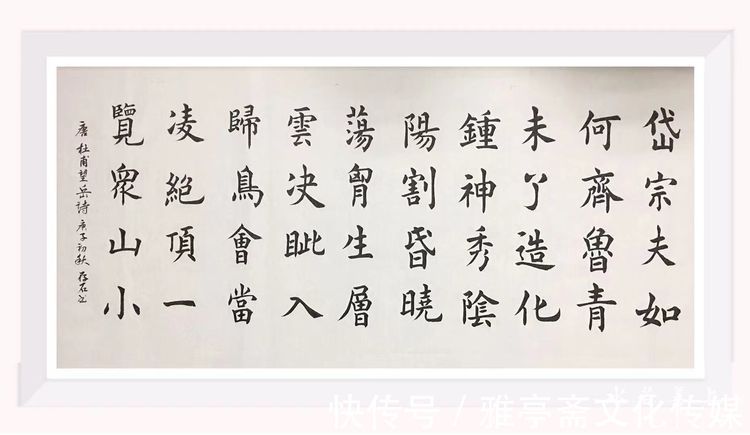 岱宗夫如
何齊魯青
未了造化
鍾神秀陰
陽割昬曉
蕩胷生層
雲决眦入
歸鳥會當
凌絕頂一
覽眾山小
唐杜甫望岳詩庚子初秋存石书
快传号 / 雅亭斋文化传媒